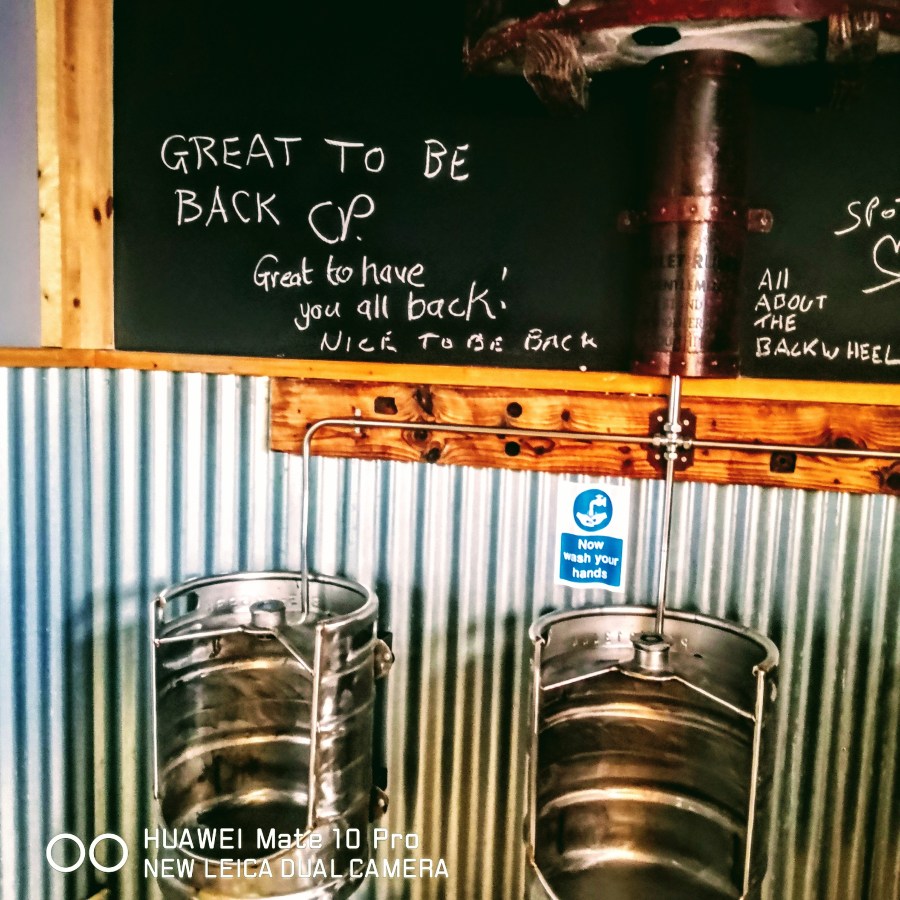 GREAT TO BE
BACK
Great to have
you all back!
NICE TO BE BACK
All
ABOUT
THE
BACKWHEEL
Now
wash your
hands
HUAWEI Mate 10 Pro
NEW LEICA DUAL CAMERA